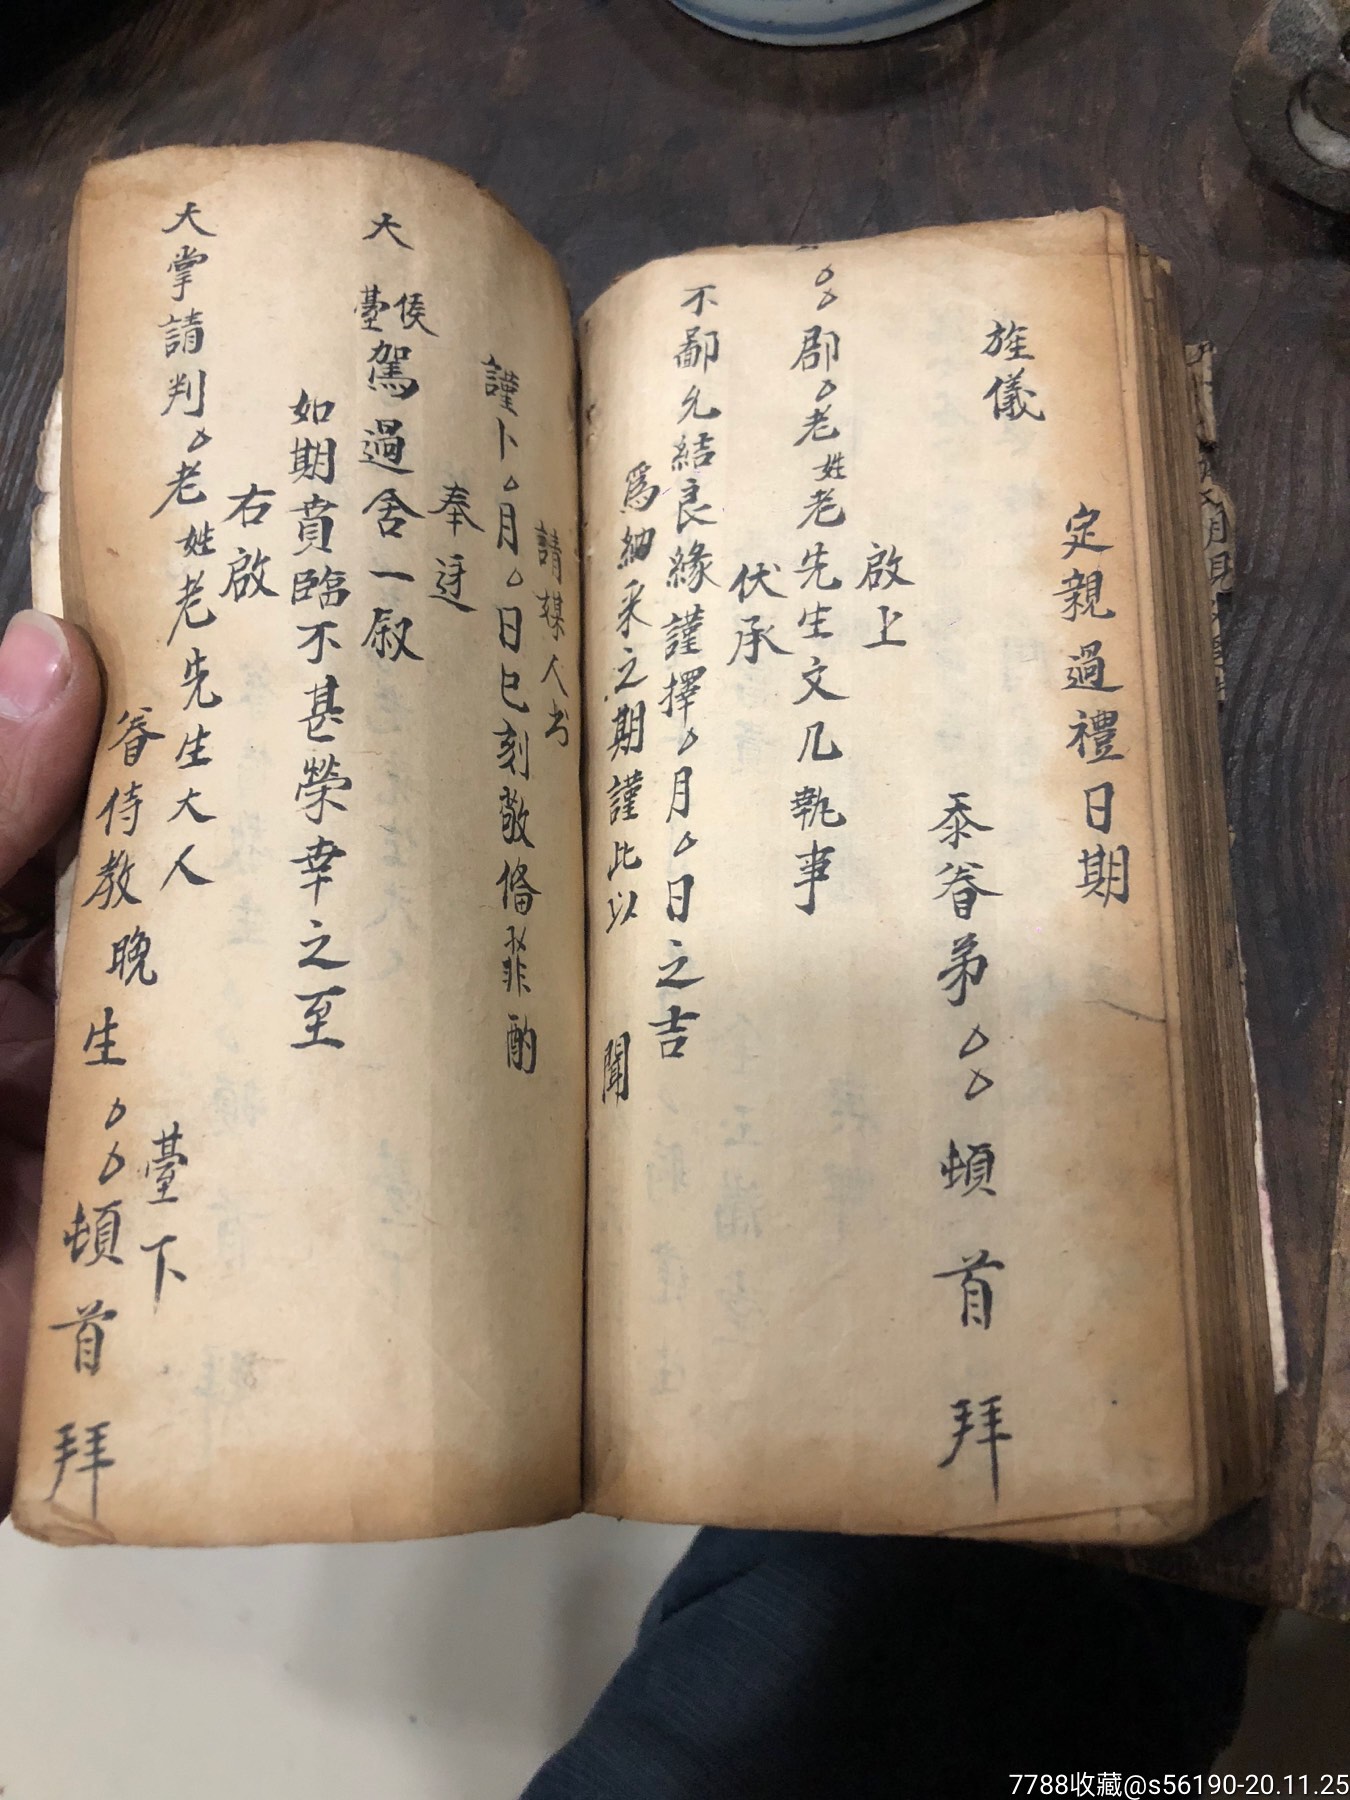 定親過禮日期
旌儀
忝眷弟〇〇頓首拜
啟上
〇〇郡〇老姓老先生文几執事
伏承
不鄙允結良緣謹擇〇月〇日之吉
爲納采之期謹此以 聞
請媒人书
謹卜〇月〇日巳刻敬俻菲酌
奉迓
大 臺侯駕過舍一叙
如期賁臨不甚榮幸之至
右啟
大掌請判〇老姓老先生大人 臺下
眷侍教晚生〇〇頓首拜
7788收藏@s56190-20.11.25